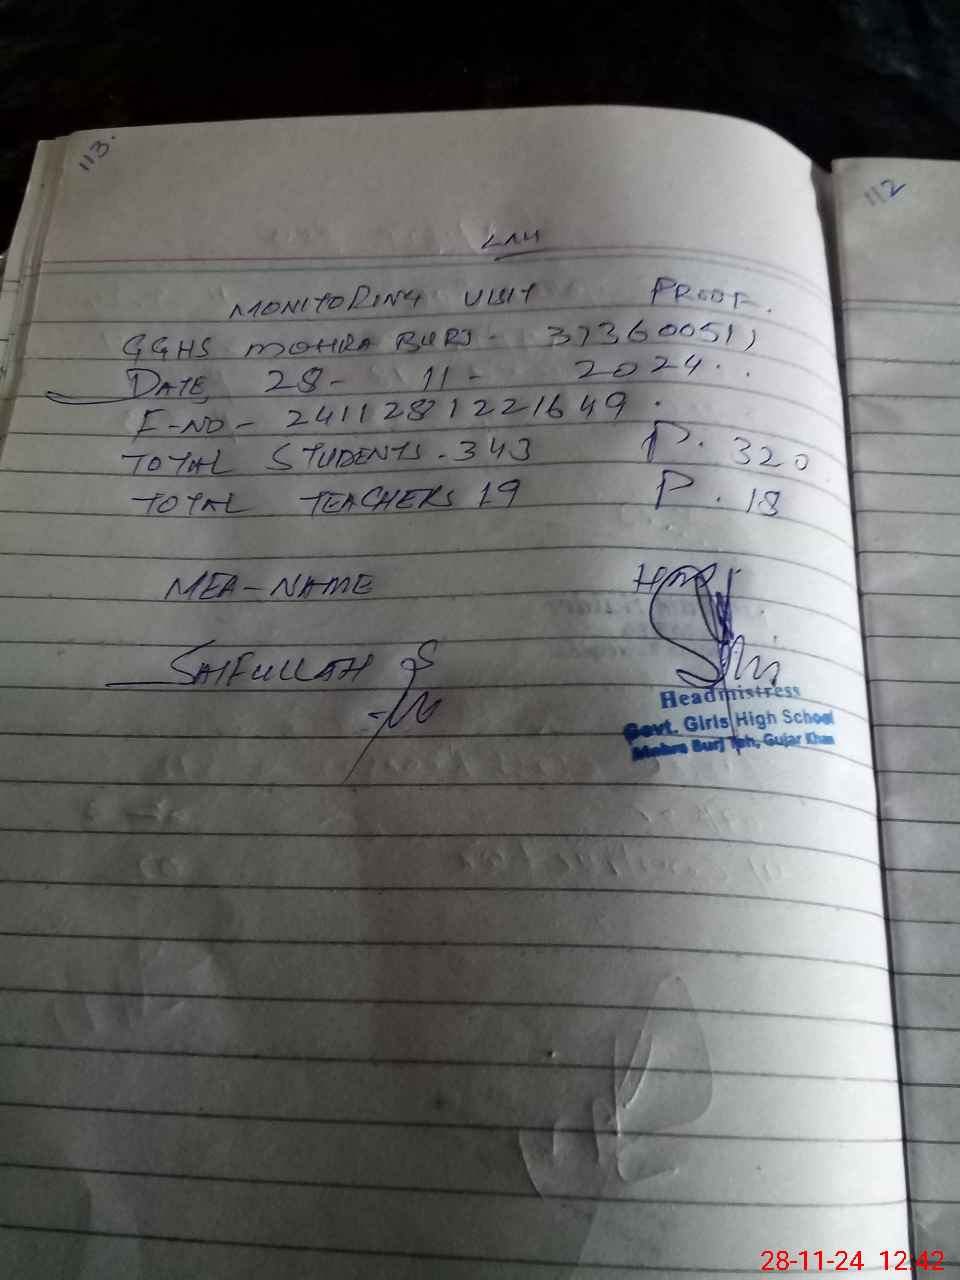 113.
112
MONITORING VISIT PROOF.
GGHS MOHRA BURJ - 37360051
DATE 28- 11- 2024..
F-NO- 2411281221649.
TOTAL STUDENTS. 343 P. 320
TOTAL TEACHERS 19 P. 18
MEA-NAME
SAIFULLAH
Headmistress
Govt. Girls High School
Mohra Burj Teh, Gujar Khan
28-11-24 12:42